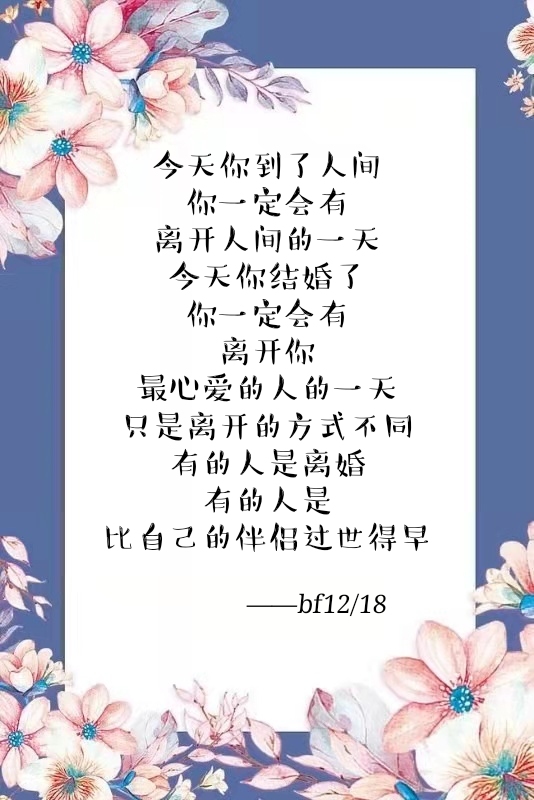 今天你到了人间
你一定会有
离开人间的一天
今天你结婚了
你一定会有
离开你
最心爱的人的一天
只是离开的方式不同
有的人是离婚
有的人是
比自己的伴侣过世得早
——bf12/18